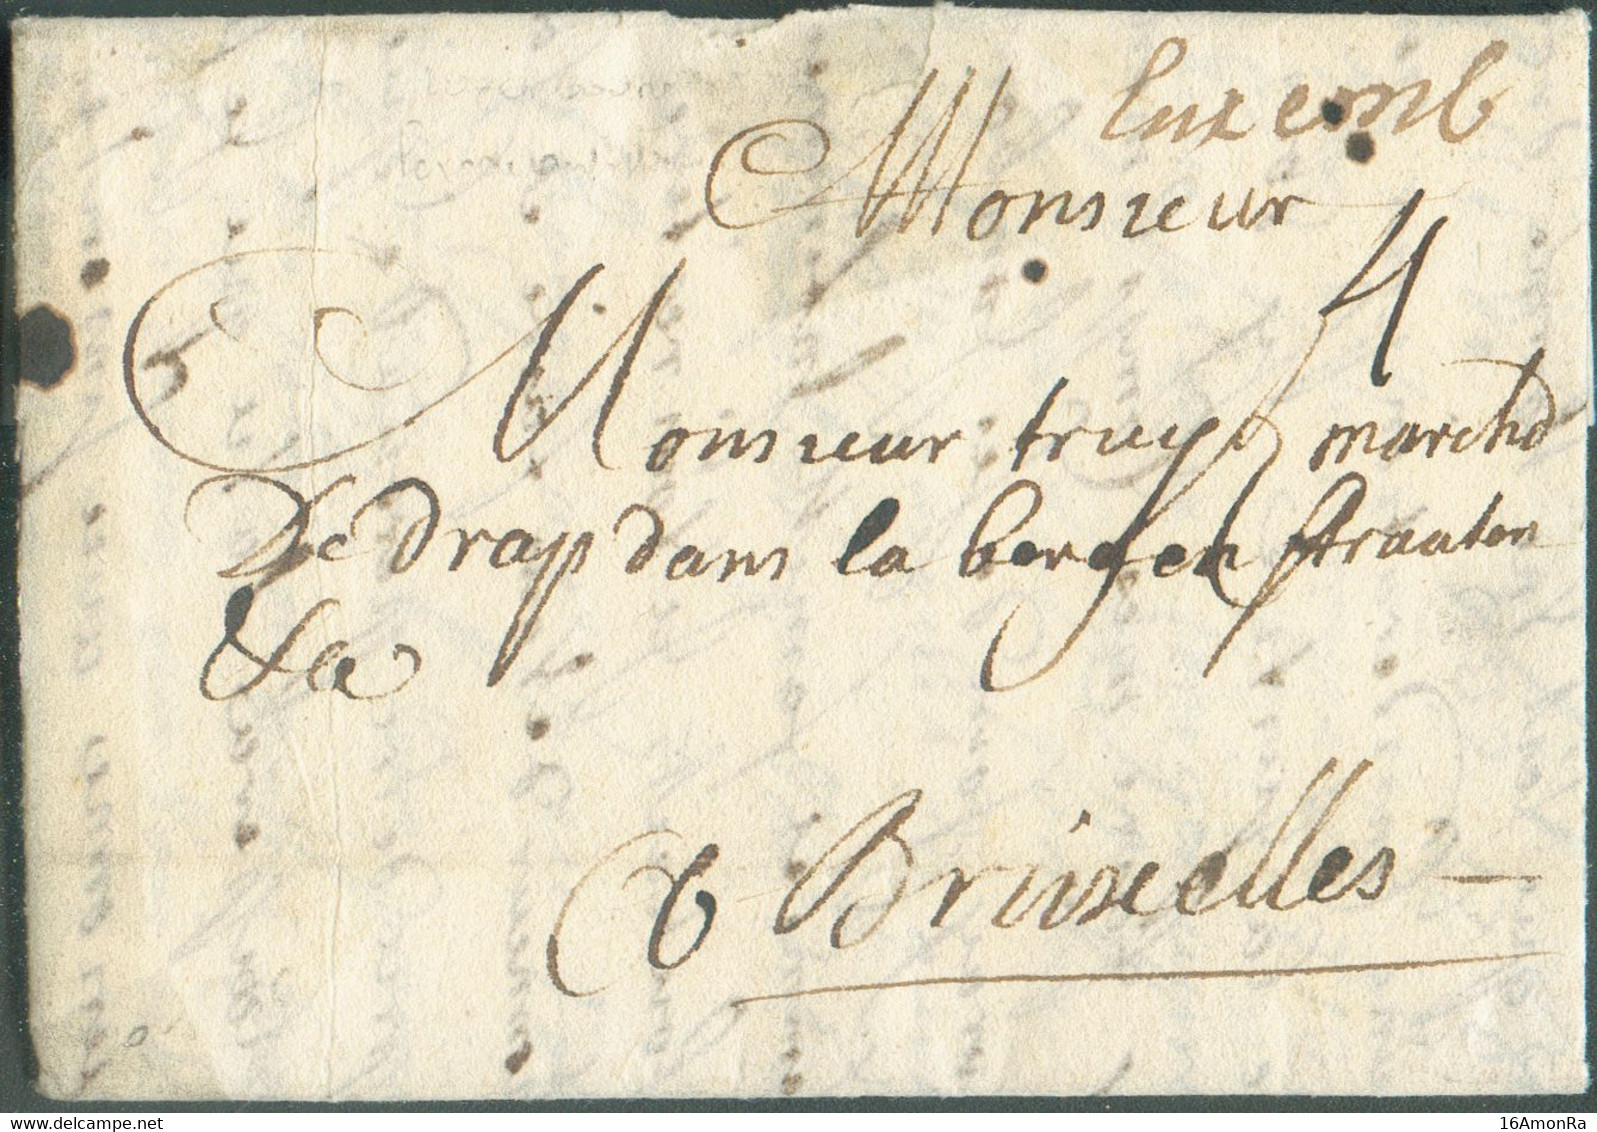 Luxemb
Monsieur
4
Monsieur truyts marchd
De drap dans la bergen straaten
&a
a Bruxelles
16AmonRa